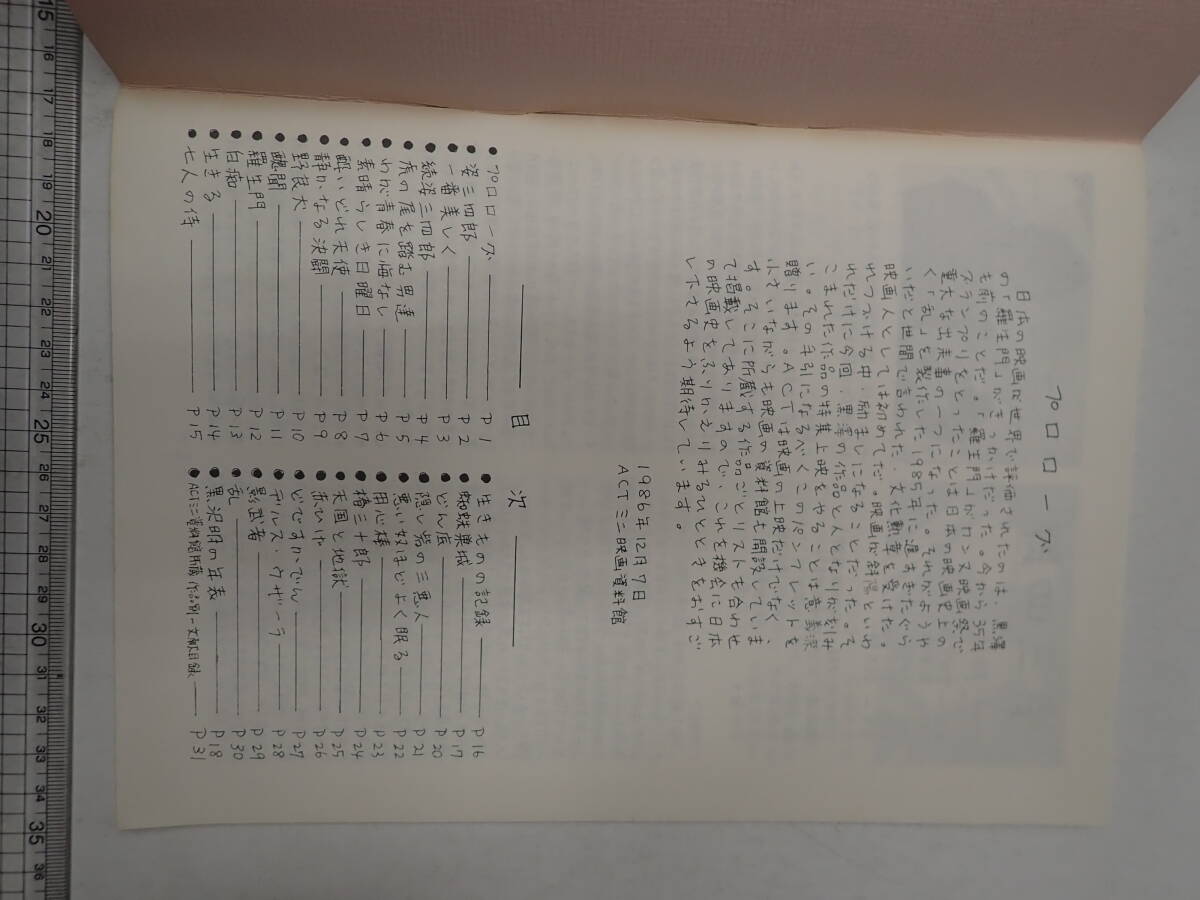 プロローグ
日本の映画が世界で評価されたのは、黒澤
の「羅生門」がきっかけだった。今から35年
も前のことだ。「羅生門」がカンヌ映画祭で
グランプリをとったことは日本の映画史上の
重大な出来事の一つになった。それがようや
く「乱」を製作した1985年に遅すぎたぐら
いだと世間で言われた、文化勲章を受けた。
映画人としては初めてだ。映画が斜陽といわ
れつづける中、励ましになることだった。そ
れだけに今回、黒澤の作品と人となりが刻み
こまれた作品の特集上映をやることは意義深
い。その手引になるべくこのパンフレットを
贈ります。ACTは映画の上映だけでなく、
小さいながらも映画の資料館も開設していま
す。そこに所蔵する作品ごとリストも合わせ
て掲載してありますので、これを機会に日本
の映画史をふりかえりみるひとときをおすご
し下さるよう期待しています。
1986年12月7日
ACTミニ映画資料館
目次
●プロローグ P1
●姿三四郎 P2
●一番美しく P3
●続姿三四郎 P4
●虎の尾を踏む男達 P5
●わが青春に悔なし P6
●素晴らしき日曜日 P7
●酔いどれ天使 P8
●静かなる決闘 P9
●野良犬 P10
●醜聞 P11
●羅生門 P12
●白痴 P13
●生きる P14
●七人の侍 P15
●生きものの記録 P16
●蜘蛛巣城 P17
●どん底 P20
●隠し砦の三悪人 P21
●悪い奴ほどよく眠る P22
●用心棒 P23
●椿三十郎 P24
●天国と地獄 P25
●赤ひげ P26
●どですかでん P27
●デルス・ウザーラ P28
●影武者 P29
●乱 P30
●黒沢明の年表 P18
●ACTミニ資料館所蔵作品別一文献目録 P31
15
16
17
18
19
20
21
22
23
24
25
26
27
28
29
30
31
32
33
34
35
36